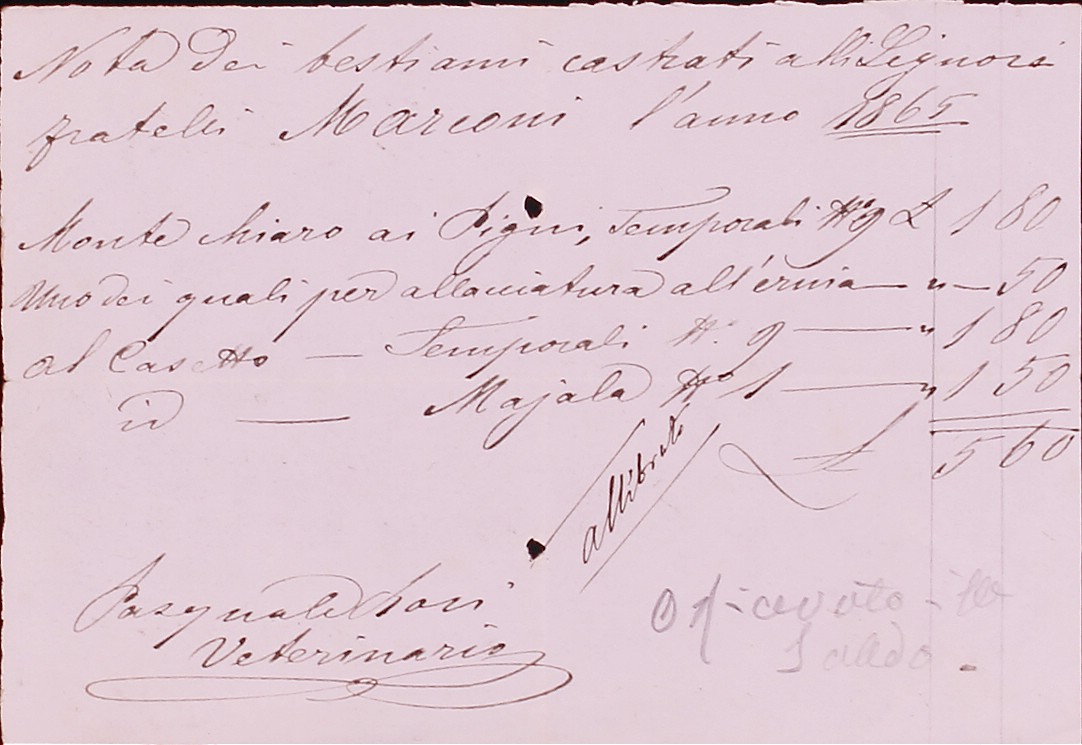 Nota dei bestiami castrati alli Signori
fratelli Marconi l'anno 1865
Monte Chiaro ai Pigni, Temporali No 9 L 1 80
Uno dei quali per allacciatura all'ernia — " — 50
al Casetto — Temporali No. 9 — " 1 80
id — Majala No 1 — " 1 50
£ 5 60
allibrato
Pasquale
Veterinario
O Ricevuto il
Saldo